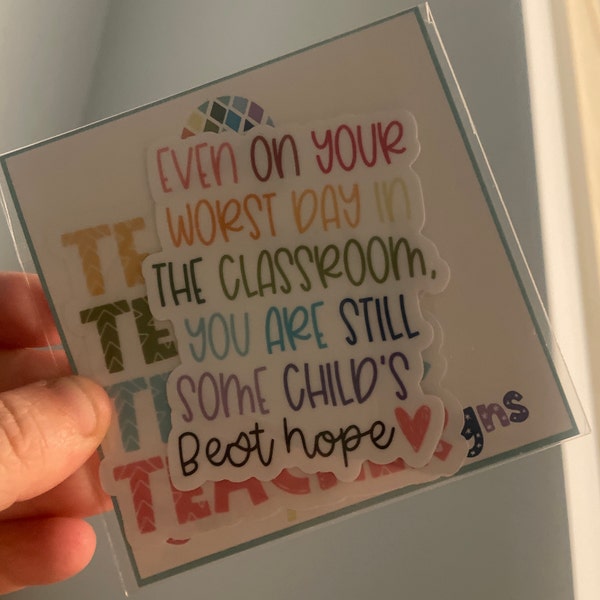 EVEN ON YOUR
WORST DAY IN
THE CLASSROOM,
YOU ARE STILL
SOME CHILD'S
Best hope
TE
TE
T
TEACH
gns